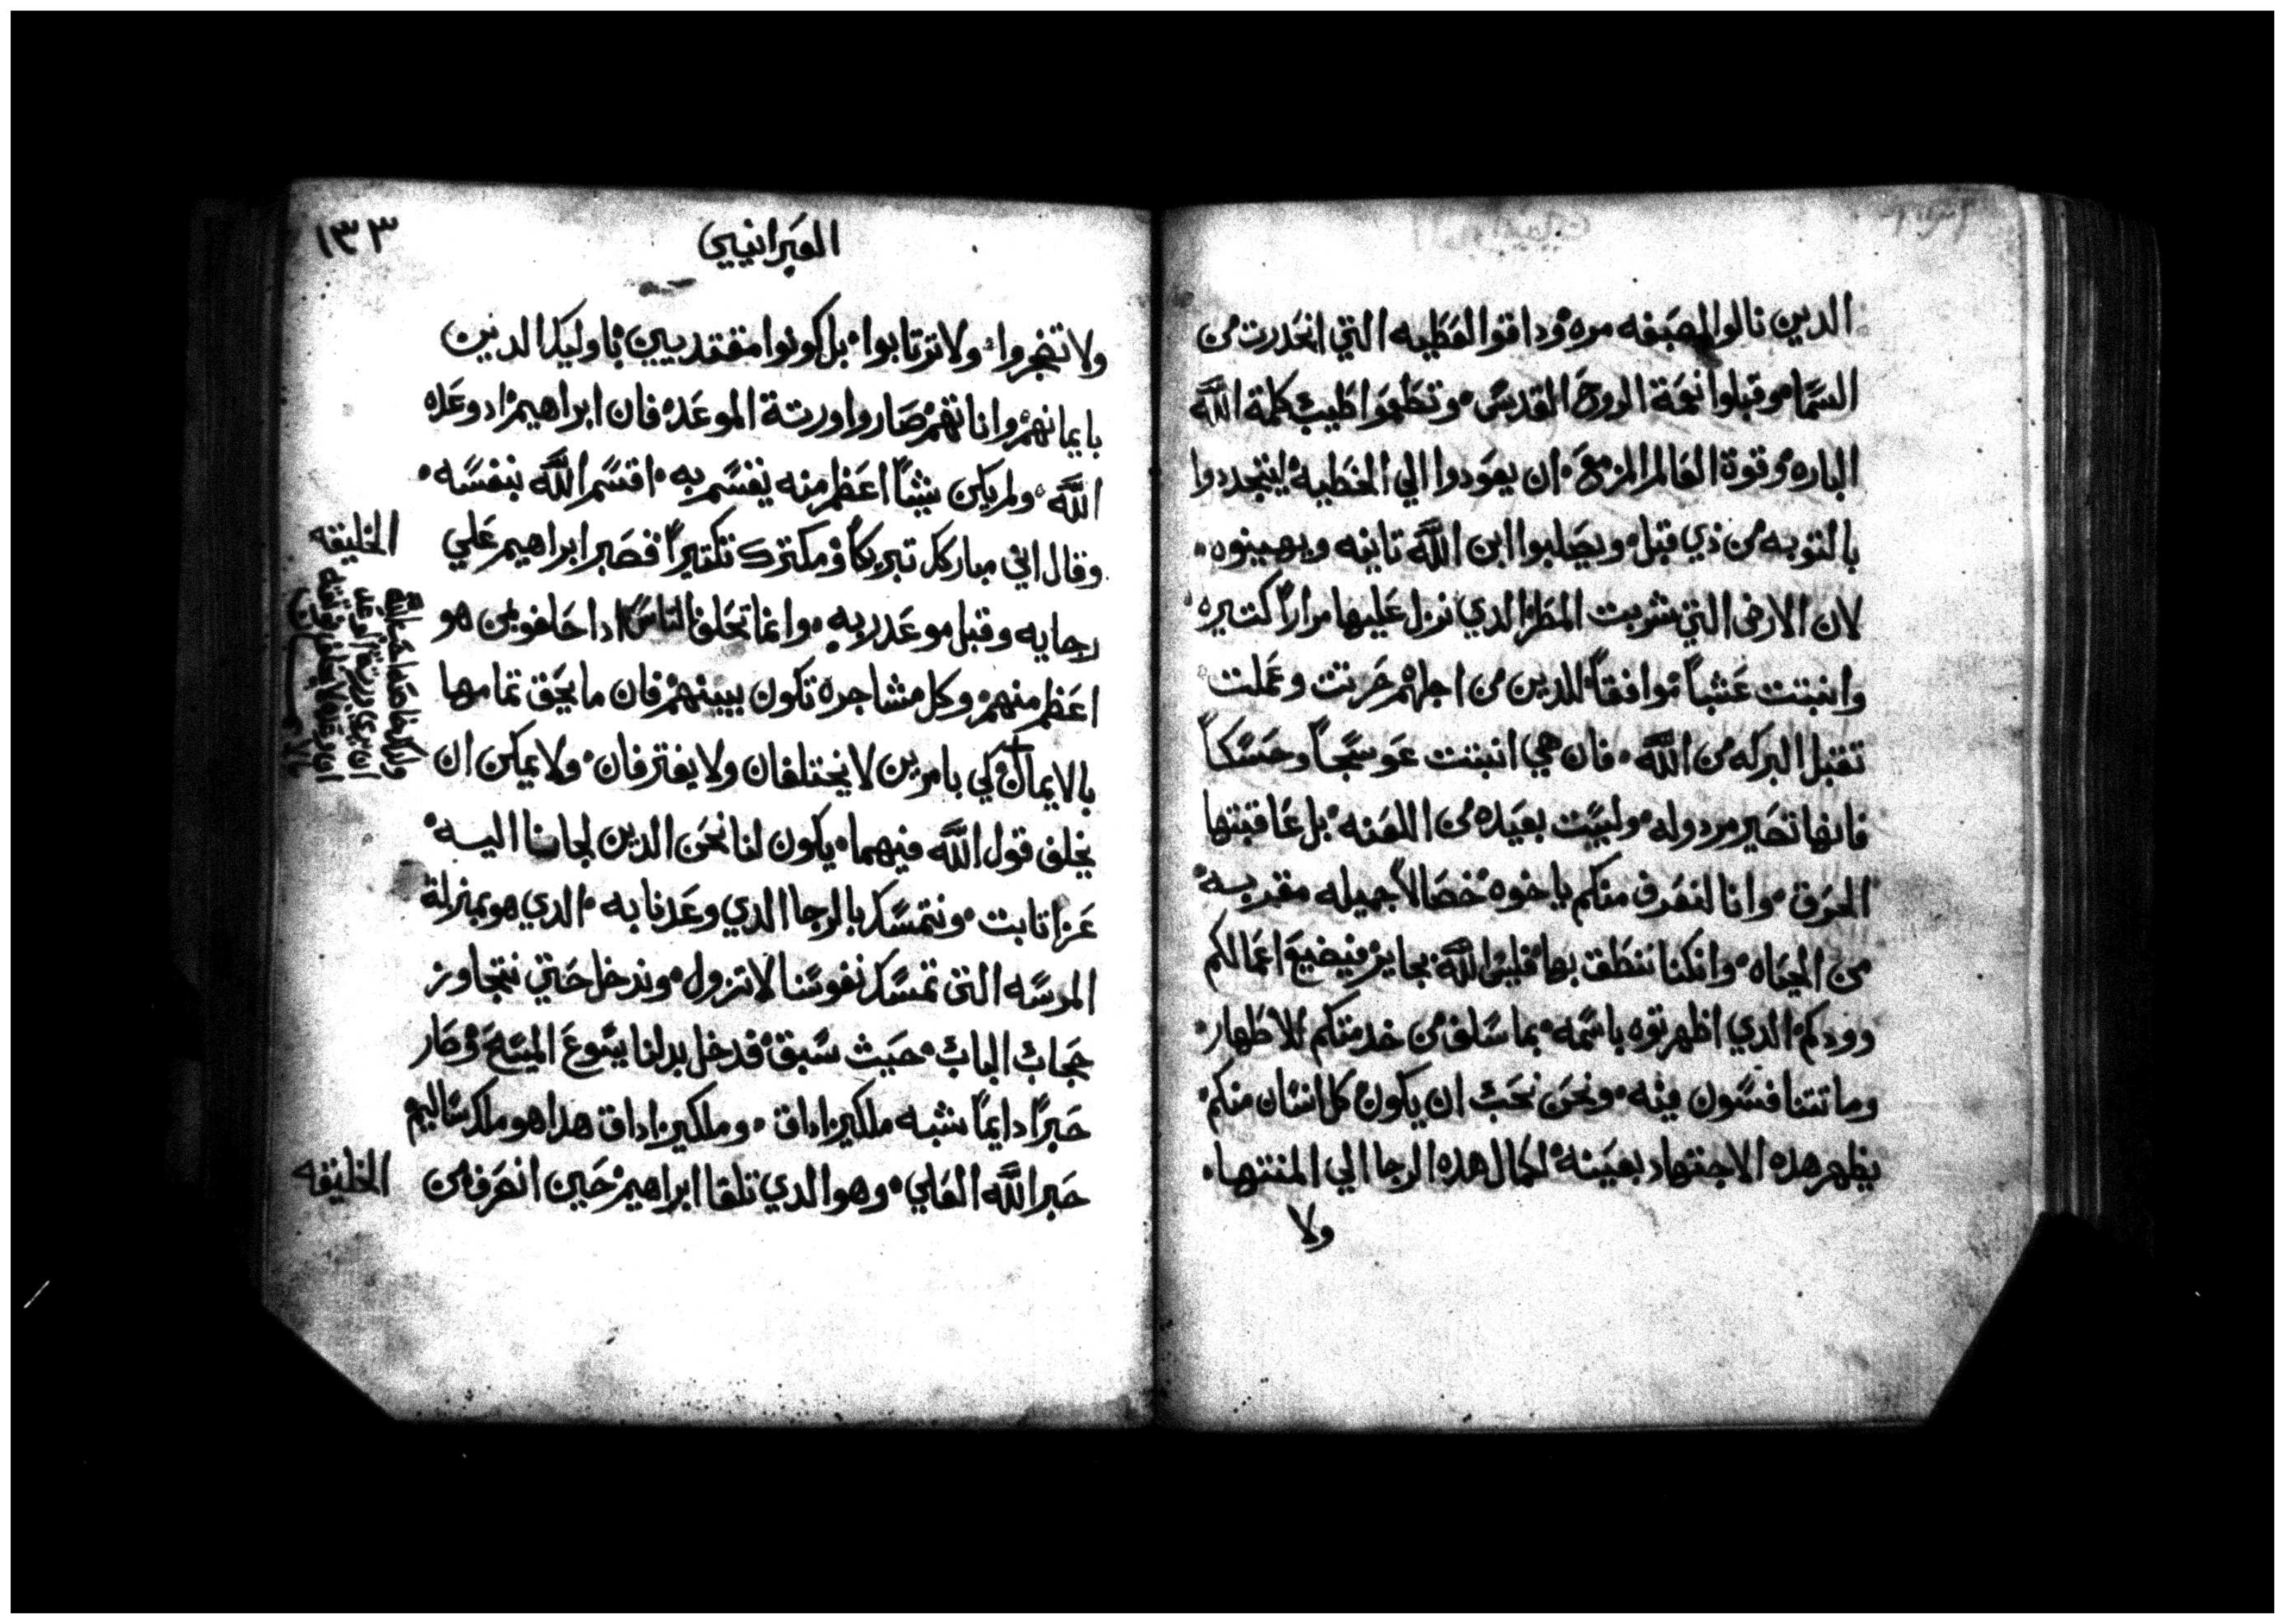 الدين نالوا الصبغه مره وداقوا العطيه التي انحدرت من
السما وقبلوا نعمة الروح القدس وتطعموا طيب كلمة الله
الباره وقوة العالم المزمع ان يعودوا الي الخطيه ليتجددوا
بالتوبه من ذي قبل ويصلبوا ابن الله تانيه ويهينوه
لان الارض التي شربت المطر الدي نزل عليها مراراً كتيره
وانبتت عشباً موافقاً للدين من اجلهم حرتت وعملت
تقبل البركه من الله فان هي انبتت عوسجاً وحسكاً
فانها تصير مردوله وليست بعيده من اللعنه بل عاقبتها
الحرق وانا لنعرف منكم ياخوه خصالاً جميله مقربه
من الحياه وانكنا ننطق بها فليس الله بجاير فيضيع اعمالكم
وودكم الدي اظهرتوه باسمه بما سلف من خدمتكم للاطهار
وما تتنافسون فيه ونحن نحب ان يكون كل انسان منكم
يظهر هذه الاجتهاد بعينه لكمال هده الرجا الي المنتها
ولا
العبرانيين
١٣٣
ولا تضجروا ولا ترتابوا بل كونوا مقتديين باوليك الدين
بايمانهم واناتهم صاروا ورتة الموعده فان ابراهيم اد وعده
الله ولم يكن شياً اعظم منه يقسم به اقسم الله بنفسه
وقال اني مباركك تبريكاً ومكترك تكتيراً فصبر ابراهيم علي
رجايه وقبل موعد ربه وانما تحلف الناس ادا حلفوا بمن هو
اعظم منهم وكل مشاجره تكون بينهم فان ما يحق تمامها
بالايمان كي بامرين لا يختلفان ولا يفترقان ولا يمكن ان
يخلف قول الله فيهما يكون لنا نحن الدين لجانا اليه
عزا تابت ونتمسك بالرجا الدي وعدنا به الدي هو بمنزلة
المرسه التي تمسك نفوسنا لا تزول وندخل حتي نتجاوز
حجاب الباب حيث سبق فدخل بدلنا يسوع المسيح وصار
حبراً دايماً شبه ملكيزاداق وملكيزاداق هدا هو ملك ساليم
حبر الله العلي وهو الدي تلقا ابراهيم حين انصرف من
الخليفه
الخليفه